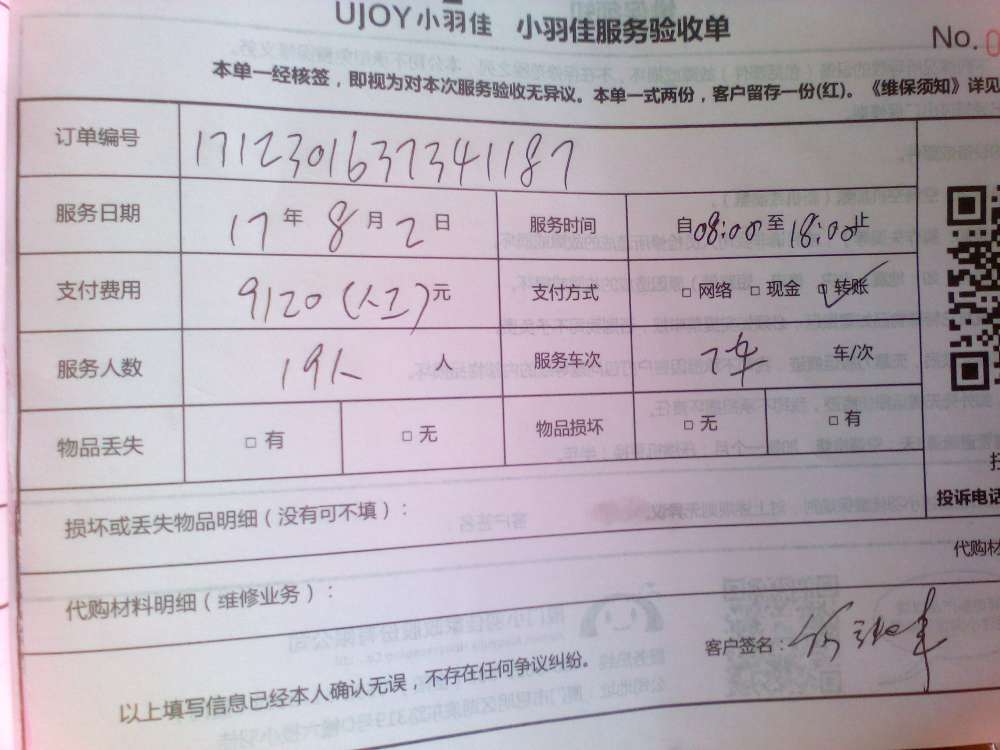 UJOY小羽佳 小羽佳服务验收单
No.
本单一经核签，即视为对本次服务验收无异议。本单一式两份，客户留存一份(红)。《维保须知》详见
订单编号 1712301637341187
服务日期 17年8月2日 服务时间 自08:00至18:00止
支付费用 9120(人工)元 支付方式 □网络 □现金 □转账
服务人数 19人 人 服务车次 车/次
物品丢失 □有 □无 物品损坏 □无 □有
投诉电话
损坏或丢失物品明细（没有可不填）：
代购材
代购材料明细（维修业务）：
客户签名：
以上填写信息已经本人确认无误，不存在任何争议纠纷。